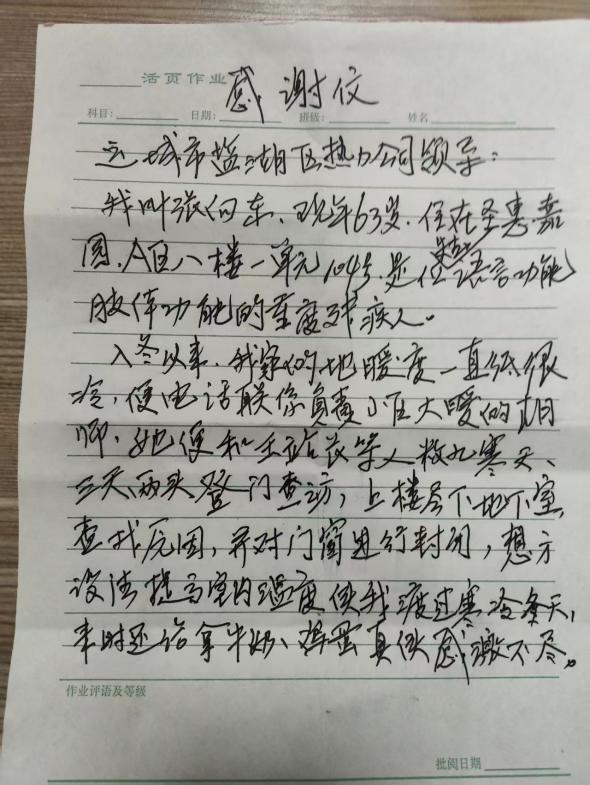 活页作业
感谢信
科目: 日期: 班级: 姓名
运城市盐湖区热力公司领导:
我叫张向东、现年63岁.住在圣惠嘉
园.A区八楼一单元104号.是位失去语言功能
肢体功能的重度残疾人。
入冬以来.我家的地暖温度一直低很
冷,便电话联係负责小区大暖的胡
师,她便和王站长等人数九寒天、
三天两头登门查访,上楼层下地下室,
查找原因,并对门窗进行封闭,想方
设法提高室内温度使我渡过寒冷冬天,
来时还给拿牛奶、鸡蛋真使感激不尽。
作业评语及等级
批阅日期